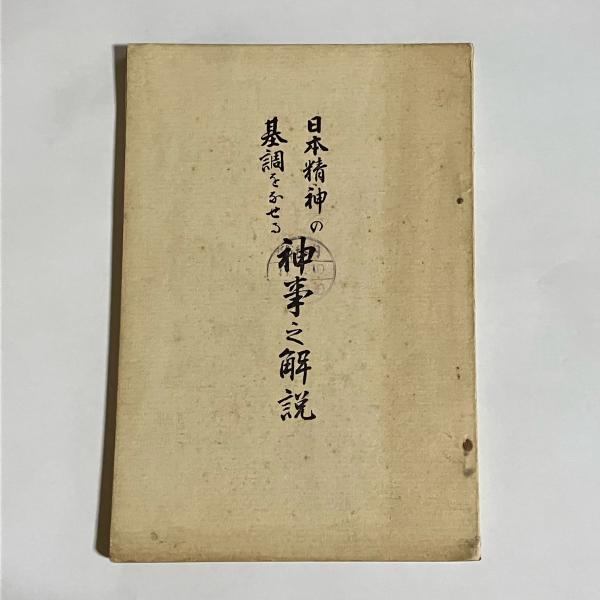 日本精神の
基調をなせる
神事之解説